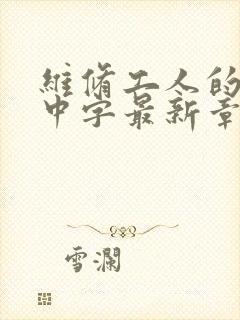 維修工人的
中字最新章
雪瀾